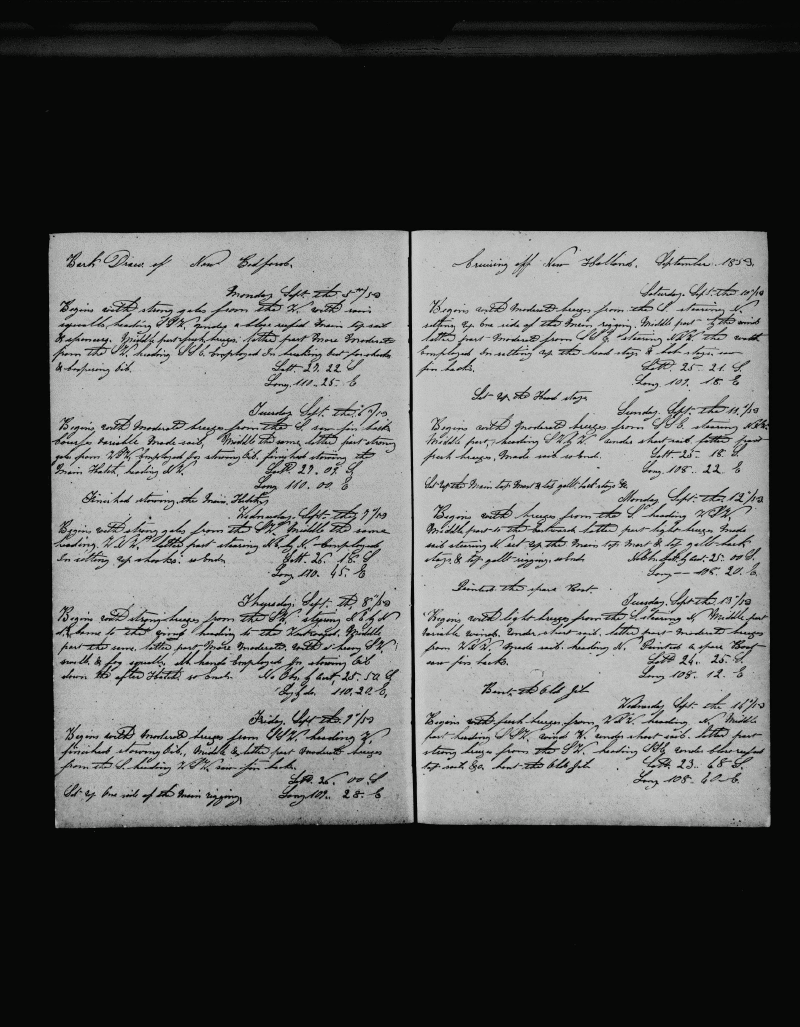 Bark Draco of New Bedford.
Monday Sept. the 5th/53
Begins with strong gales from the W. with rain
squalls, heading SSW. under a close reefed Main top sail
& spencer. Middle part fresh breezes. latter part More Moderate
from the SW. heading Employed In breaking out forehold
& Coopering Oil. Latt- 27. 22 S
Long. 110- 25- E
Tuesday Sept. the 6/53
Begins with Moderate breezes from the S. saw fin back
Course variable Made sail. Middle the same, latter part strong
gale from WSW. Employed In stowing Oil. finished stowing the
Main Hatch, heading Latt. 27. 07. S
Long 110- 00. E
Finished stowing the Main Hatch,
Wednesday. Sept. the 7/53
Begins with strong gales from the SW. Middle the same
heading latter part stearing N. b. y W. Employed
In setting up shooks. so ends. Latt- 26. 18. S
Long 110. 45. E
Thursday. Sept. the 8/53
Begins with strong breezes from the SW. stearing N. b. y W
came to the wind heading to the Westward, Middle
part the same. latter part More Moderate with a heavy SW.
swell & fog squalls. all hands Employed In stowing Oil
down the after Hatch so ends. No Obs. by acct- 25- 50. S
Long by do. 110. 20. E.
Friday. Sept the 9/53
Begins with Moderate breezes from SSW. heading W.
finished stowing Oil. Middle & latter part Moderate breezes
from the S. heading WSW. saw fin backs.
Latt. 26. 00 S
Set up One side of the Main rigging, Long 109.. 28- E
Cruising off New Holland. September. 1853.
Saturday. Sept. the 10/53
Begins with Moderate breezes from the S. stearing N.
setting up One side of the Main rigging. Middle part the wind
latter part Moderate from stearing the watch
Employed In setting up the head stays & bob stays. saw
fin backs. Latt. 25- 21. S
Long. 109. 18. E
Set up the Head stays
Sunday. Sept. the 11/53
Begins with Moderate breezes from
Middle part, heading under short sail. latter part
fresh breezes, Made sail so ends. Latt- 25- 18. S
Long. 108- 22. E
Set up the Main top Mast & top gall- back stays &c
Monday Sept. the 12/53
Begins with breezes from the Sd heading WSW.
Middle part to the Eastward latter part light breezes Made
sail stearing N. set up the Main top Mast & top gall- back
stays & top gall- rigging. so ends No Obs. Latt. by act- 25- 00 S.
Long 108- 20. E.
Painted the spare Boat.
Tuesday, Sept the 13/53
Begins with light breezes from the S. stearing N. Middle part
variable winds. Under short sail. latter part Moderate breezes
from Made sail heading N. Painted a spare Boat
saw fin backs. Latt. 24. 25. S
Long 108- 12. E
Bent the Old Jib.
Wednesday Sept. the
Begins with fresh breezes from heading Middle
part heading SSW. wind under short sail. latter part
strong breeze from the heading under close reefed
top sail &c. bent the Old Jib Latt. 23. 48 S.
Long. 108- 40 E.